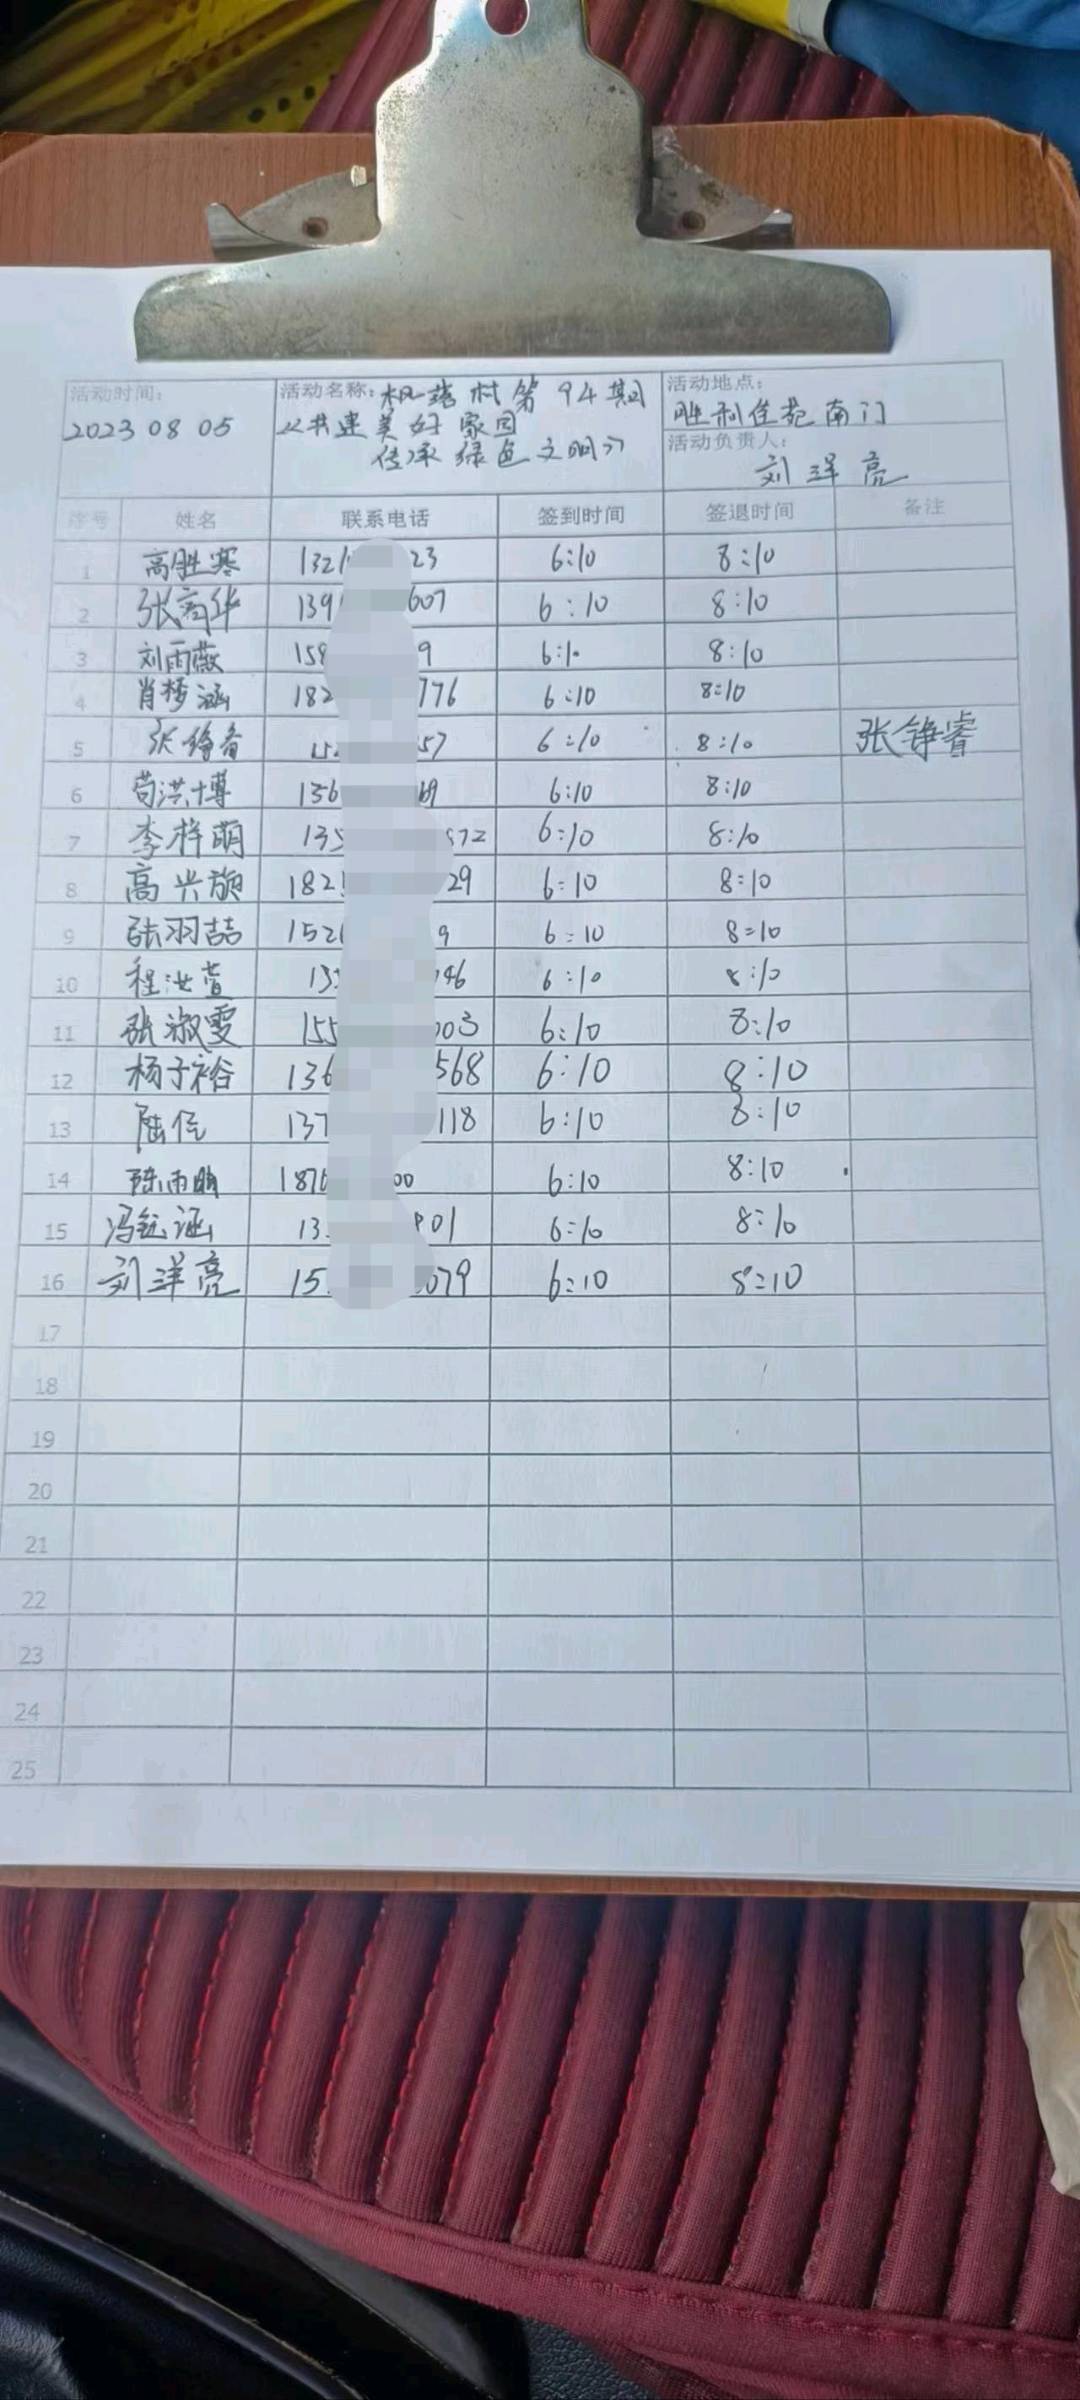 活动时间：
2023 08 05
活动名称：枫落村第94期
“共建美好家园
传承绿色文明”
活动地点：
胜利佳苑南门
活动负责人：
刘洋亮
序号 姓名 联系电话 签到时间 签退时间 备注
1 高胜寒 132 23 6:10 8:10
2 张高华 139 607 6:10 8:10
3 刘雨薇 158 9 6:10 8:10
4 肖梦涵 182 776 6:10 8:10
5 张铮睿 152 57 6:10 8:10 张铮睿
6 苟洪博 136 69 6:10 8:10
7 李梓萌 135 572 6:10 8:10
8 高兴旗 182 29 6:10 8:10
9 张羽喆 152 9 6:10 8:10
10 程洪萱 13 46 6:10 8:10
11 张淑雯 155 003 6:10 8:10
12 杨子裕 136 568 6:10 8:10
13 陆 137 118 6:10 8:10
14 陈雨 187 00 6:10 8:10
15 冯钰涵 13 01 6:10 8:10
16 刘洋亮 15 079 6:10 8:10
17
18
19
20
21
22
23
24
25